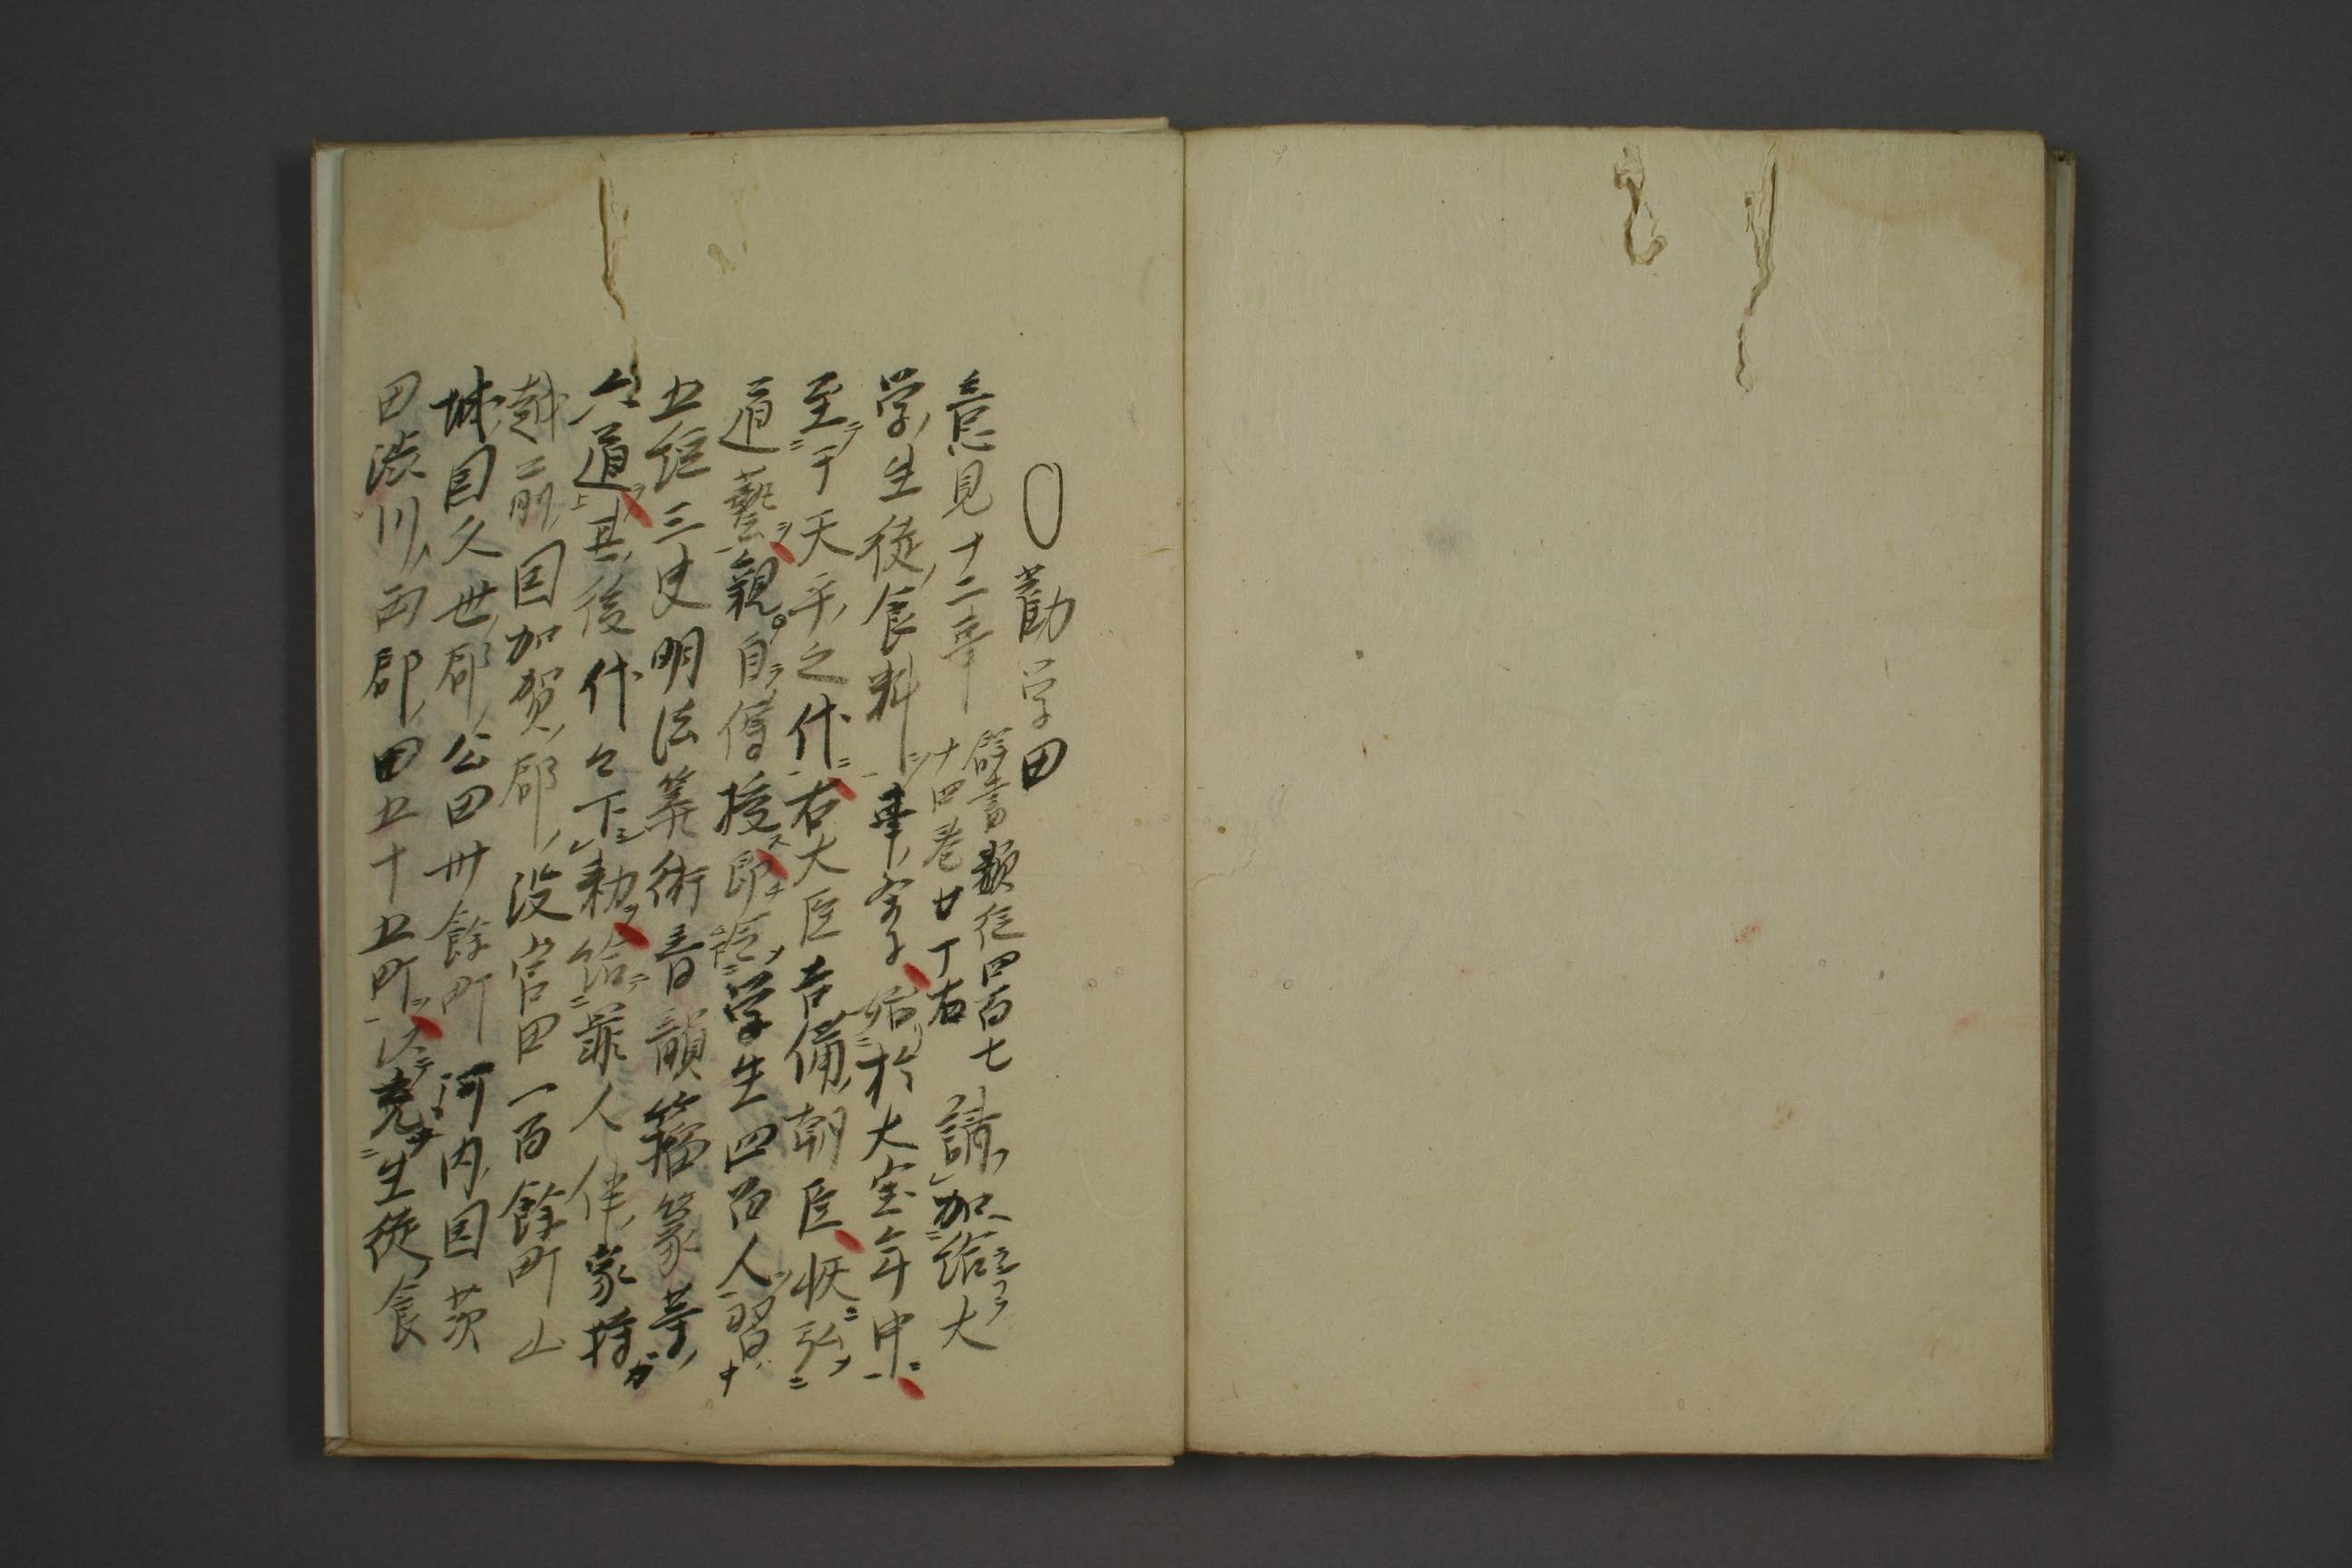 ○勧学田
意見十二事 群書類従四百七
十四巻廿丁右 請加給大
学生徒食料事云々始於大宝年中
至于天平之代右大臣吉備朝臣恢弘
道藝親自傳授即令学生四百人習
五経三史明法筭術音韻籀篆等
六道其後代々下勅給罪人伴家持
越前国加賀郡没官田一百餘町山
城国久世郡公田卅餘町河内国茨
田渋川両郡田五十五町以充生徒食